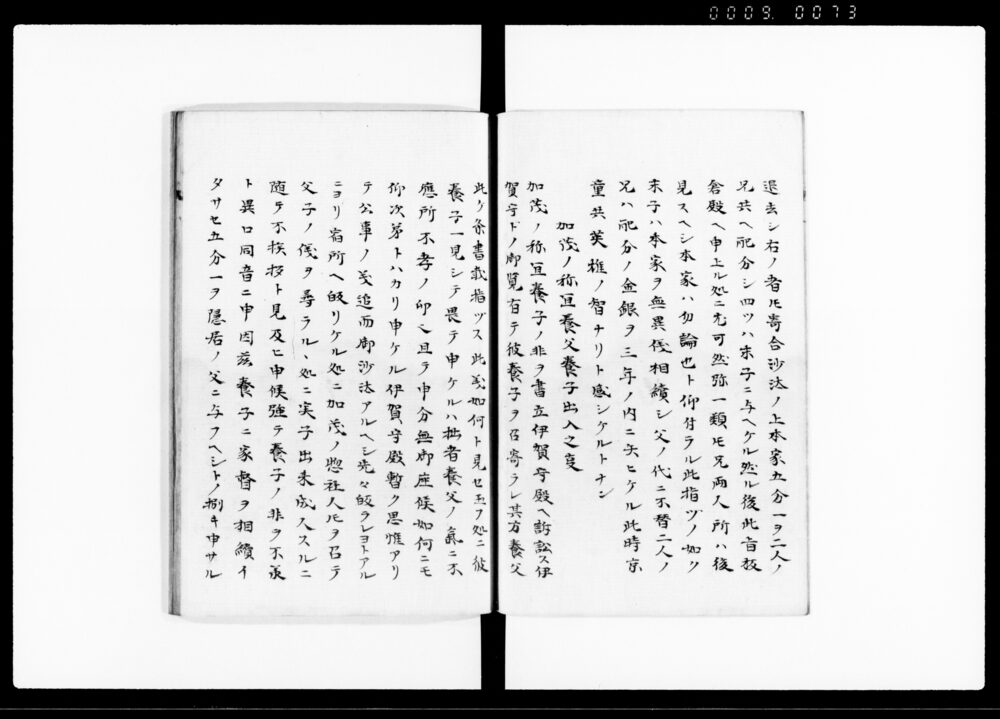 0009. 0073
退去シ右ノ者ﾓ寄合沙汰ノ上本家五分一ヲ二人ノ
兄共ヘ配分シ四ツハ末子ニ与ヘケル然ル後此旨板
倉殿ヘ申上ル処ニ尤可然弥一類ﾓ兄両人所ハ後
見スヘシ本家ハ勿論也ト仰付ラル此指ヅノ如ク
末子ハ本家ヲ無異儀相續シ父ノ代ニ不替二人ノ
兄ハ配分ノ金銀ヲ三年ノ内ニ失ヒケル此時京
童共英雄ノ智ナリト感シケルトナン
加茂ノ称亘養父養子出入之夏
加茂ノ称亘養子ノ非ヲ書立伊賀守殿ヘ訴訟ス伊
賀守ドノ御覧有テ彼養子ヲ召寄ラレ其方養父
此ケ条書載指ヅス此義如何ト見セ玉フ処ニ彼
養子一見シテ畏テ申ケルハ拙者養父ノ氣ニ不
應所不孝ノ
旦テ申分無御座候如何ニモ
仰次第トハカリ申ケル伊賀守殿暫ク思惟アリ
テ公事ノ義追而御沙汰アルヘシ先々皈ラレヨトアル
ニヨリ宿所ヘ皈リケル処ニ加茂ノ惣社人ﾓヲ召テ
父子ノ儀ヲ尋ラル丶処ニ実子出来成人スルニ
随テ不挨拶ト見及ヒ申候強テ養子ノ非ヲ不承
ト異口同音ニ申因茲養子ニ家督ヲ相續イ
タサセ五分一ヲ隠居ノ父ニ与フヘシトノ捌キ申サル